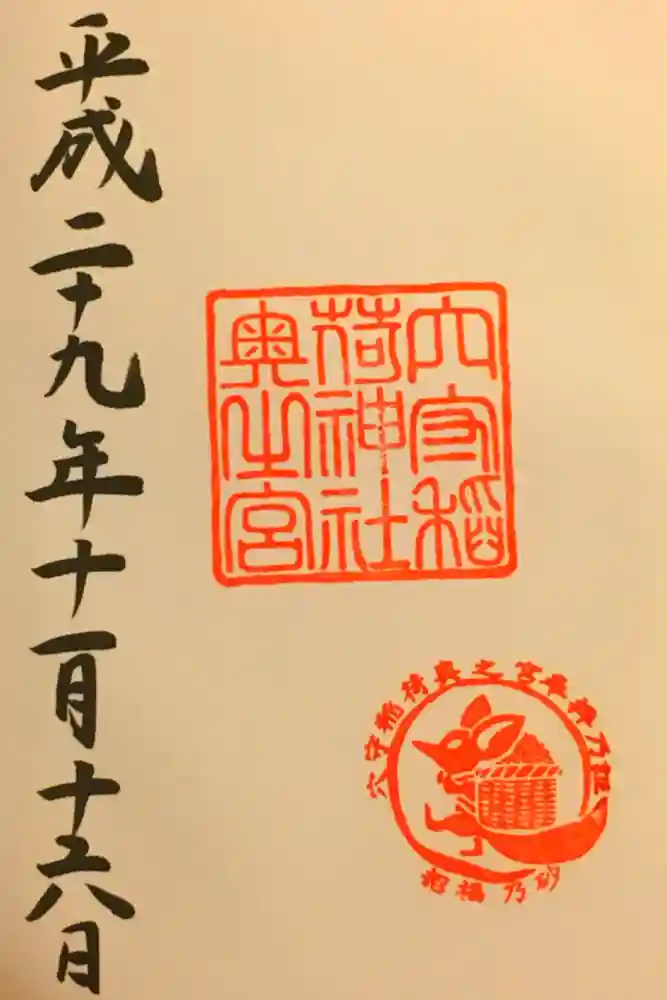 穴守稲
荷神社
奥之宮
穴守稲荷奥之宮奉拝乃証
招福乃砂
平成二十九年十一月十六日